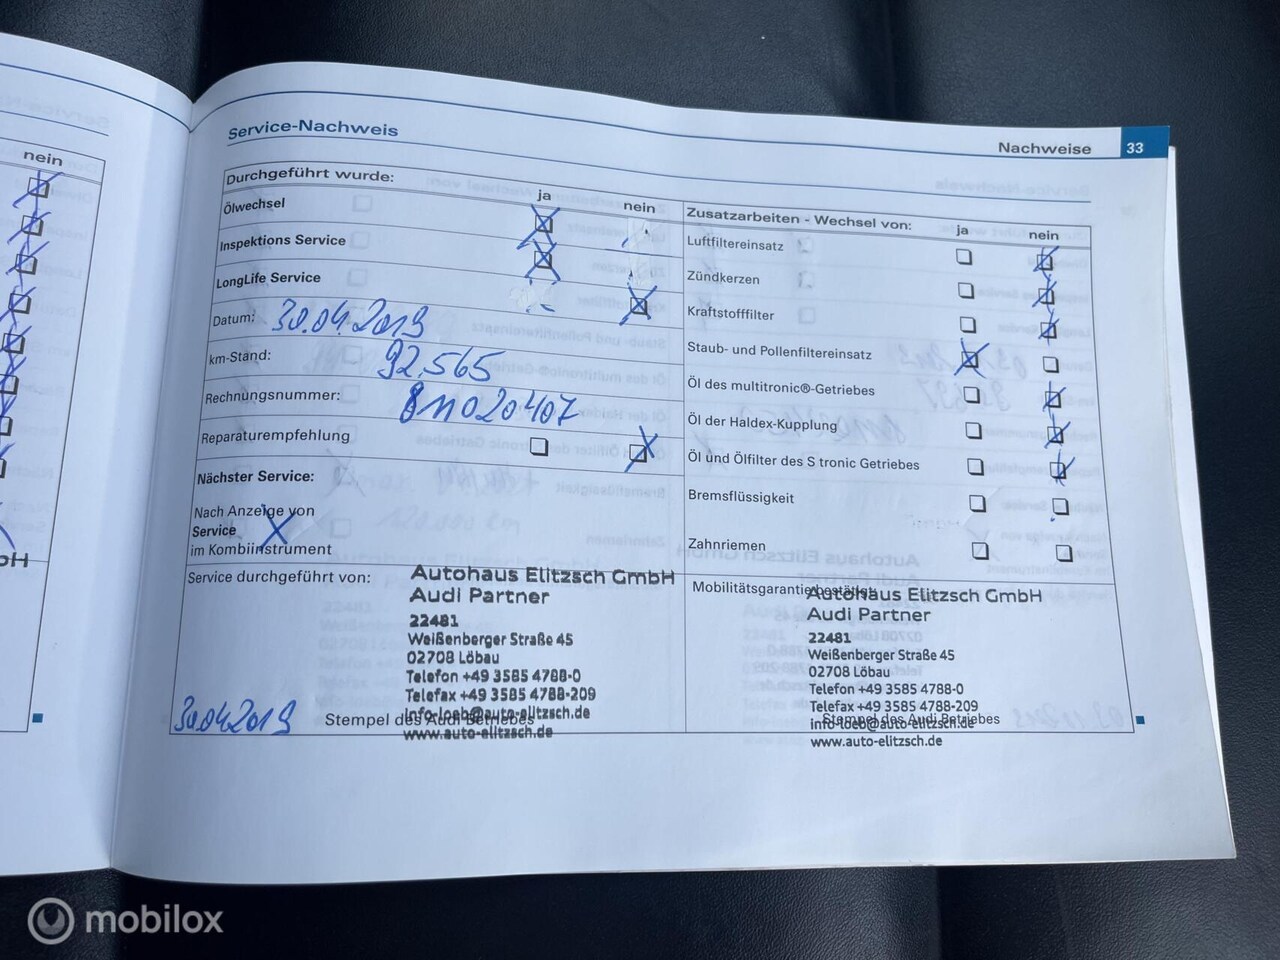 nein
Service-Nachweis
Nachweise 33
Durchgeführt wurde:
ja nein
Ölwechsel
Inspektions Service
LongLife Service
Datum: 30.04.2019
km-Stand: 92.565
Rechnungsnummer:
Reparaturempfehlung
Nächster Service:
Nach Anzeige von
Service
im Kombiinstrument
Service durchgeführt von:
Autohaus Elitzsch GmbH
Audi Partner
22481
Weißenberger Straße 45
02708 Löbau
Telefon +49 3585 4788-0
Telefax +49 3585 4788-209
info-loeb@auto-elitzsch.de
www.auto-elitzsch.de
30.04.2019
Stempel des Audi Betriebes
Zusatzarbeiten - Wechsel von:
ja nein
Luftfiltereinsatz
Zündkerzen
Kraftstofffilter
Staub- und Pollenfiltereinsatz
Öl des multitronic®-Getriebes
Öl der Haldex-Kupplung
Öl und Ölfilter des S tronic Getriebes
Bremsflüssigkeit
Zahnriemen
Mobilitätsgarantie bestätigt
Autohaus Elitzsch GmbH
Audi Partner
22481
Weißenberger Straße 45
02708 Löbau
Telefon +49 3585 4788-0
Telefax +49 3585 4788-209
info-loeb@auto-elitzsch.de
Stempel des Audi Betriebes
www.auto-elitzsch.de
mobilox